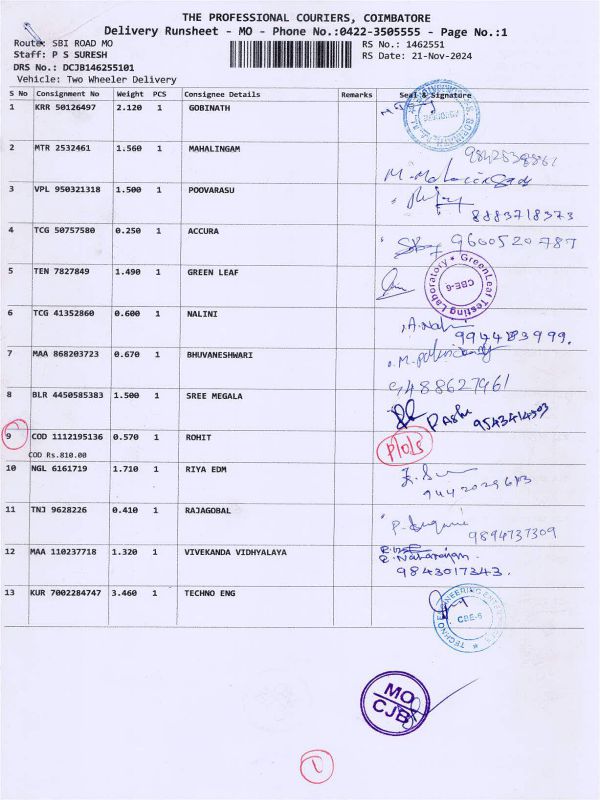 THE PROFESSIONAL COURIERS, COIMBATORE
Delivery Runsheet - MO - Phone No.:0422-3505555 - Page No.:1
Route: SBI ROAD MO
RS No.: 1462551
Staff: P S SURESH
RS Date: 21-Nov-2024
DRS No.: DCJB146255101
Vehicle: Two Wheeler Delivery
S No Consignment No Weight PCS Consignee Details Remarks Seal & Signature
1 KRR 50126497 2.120 1 GOBINATH
2 MTR 2532461 1.560 1 MAHALINGAM
3 VPL 950321318 1.500 1 POOVARASU
8883718373
4 TCG 50757580 0.250 1 ACCURA
9600520787
5 TEN 7827849 1.490 1 GREEN LEAF
GreenLeaf Testing Laboratory
CBE-6
6 TCG 41352860 0.600 1 NALINI
7 MAA 868203723 0.670 1 BHUVANESHWARI
9488627961
8 BLR 4450585383 1.500 1 SREE MEGALA
9 COD 1112195136 0.570 1 ROHIT
COD Rs.810.00
10 NGL 6161719 1.710 1 RIYA EDM
11 TNJ 9628226 0.410 1 RAJAGOBAL
9894737309
12 MAA 110237718 1.320 1 VIVEKANDA VIDHYALAYA
9843017343.
13 KUR 7002284747 3.460 1 TECHNO ENG
TECHNO ENGINEERING ENTERPRISES
CBE-6
MO
CJB
1